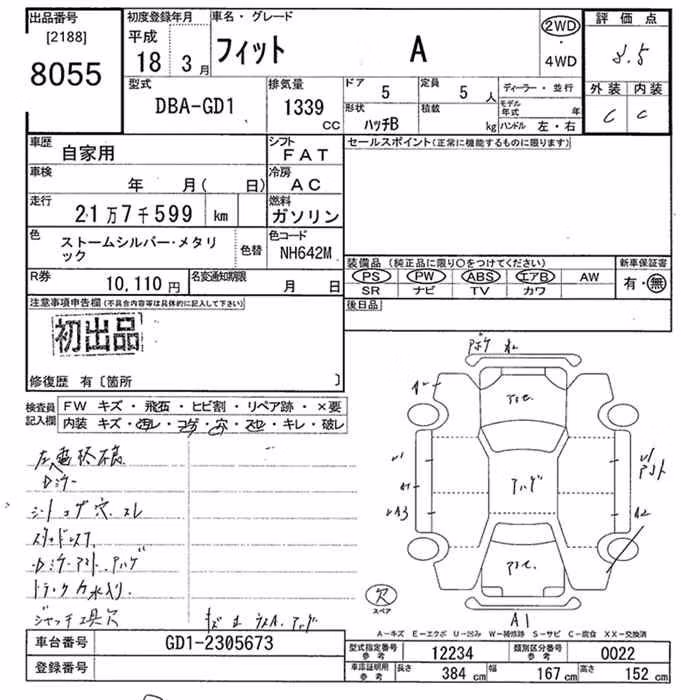 出品番号
[2188]
8055
初度登録年月
平成
18 3月
車名・グレード
フィット A
2WD
・
4WD
評価点
3.5
外装 内装
C C
型式
DBA-GD1
排気量
1339
CC
ドア
5
定員
5 人
形状
ハッチB
積載
kg
ディーラー・並行
モデル年式 年
ハンドル 左・右
車歴
自家用
シフト
FAT
セールスポイント(正常に機能するものに限ります)
車検
年 月( 日)
冷房
AC
走行
21万7千599 km
燃料
ガソリン
色
ストームシルバー・メタリック
色替
色コード
NH642M
装備品(純正品に限り○をつけてください)
PS PW ABS エアB AW
SR ナビ TV カワ
新車保証書
有・無
R券
10,110 円
名変通知期限
月 日
後日品
注意事項申告欄(不具合内容等は具体的に記入して下さい)
初出品
修復歴 有〔箇所 〕
検査員記入欄
FW キズ・飛石・ヒビ割・リペア跡・×要
内装 キズ・汚レ・コゲ・穴・スセ・キレ・破レ
シートコゲ穴 スレ
トランク内水入り
A2
A1
A2
欠
スペア
A1
A-キズ E-エクボ U-凹み W-補修跡 S-サビ C-腐食 XX-交換済
車台番号
GD1-2305673
登録番号
型式指定番号
参考
12234
類別区分番号
参考
0022
車庫証明用
参考
長さ 384 cm
幅 167 cm
高さ 152 cm